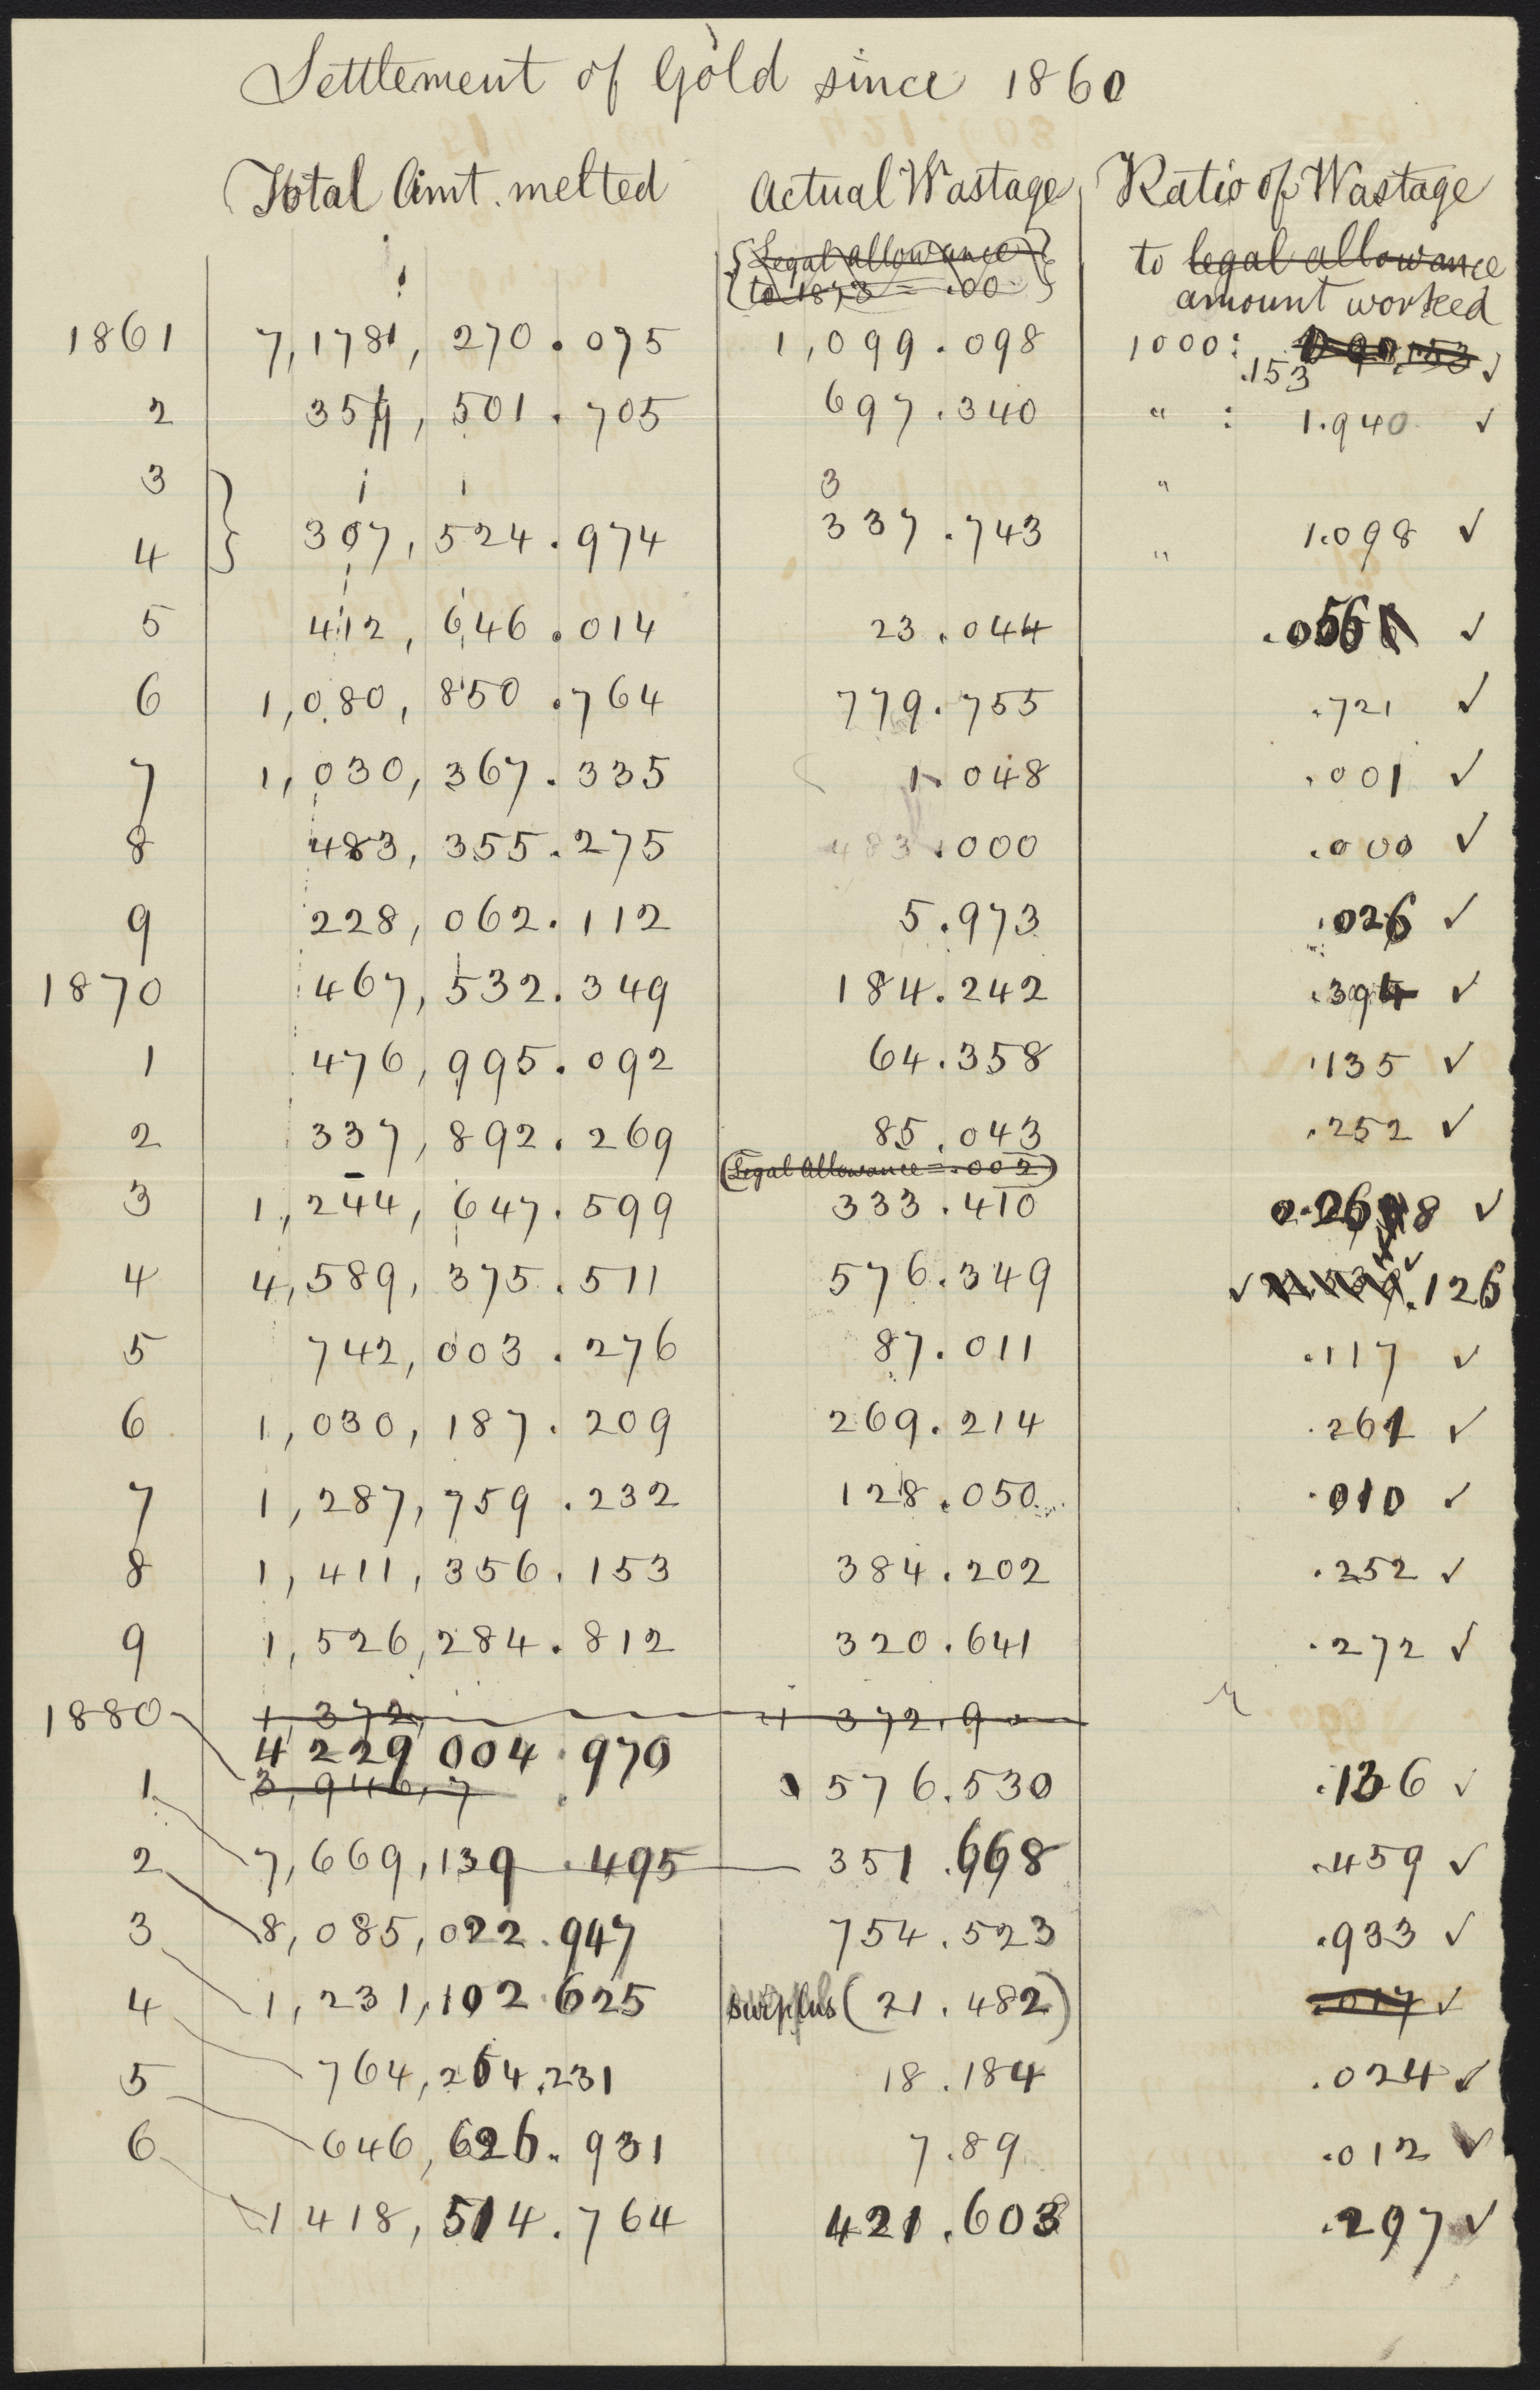 Settlement of Gold since 1860
Total Amt. melted Actual Wastage Ratio of Wastage
{Legal allowance} to legal allowance
{to 1873 = .00 } amount worked
1861 7,178, 270.075 1,099.098 1000: .153 ✓
2 359, 501.705 697.340 " : 1.940 ✓
3 3 "
4 307, 524.974 337.743 " 1.098 ✓
5 412, 646.014 23.044 .056 ✓
6 1,080, 850.764 779.755 .721 ✓
7 1,030, 367.335 1.048 .001 ✓
8 483, 355.275 483.000 .000 ✓
9 228, 062.112 5.973 .026 ✓
1870 467, 532.349 184.242 .394 ✓
1 476, 995.092 64.358 .135 ✓
2 337, 892.269 85.043 .252 ✓
(Legal Allowance = .002)
3 1,244, 647.599 333.410 0.268 ✓
4 4,589, 375.511 576.349 ✓ .126
5 742, 003.276 87.011 .117 ✓
6 1,030, 187.209 269.214 .261 ✓
7 1,287,759.232 128.050 .010 ✓
8 1,411,356.153 384.202 .252 ✓
9 1,526,284.812 320.641 .272 ✓
1880 1,372, 1 372.9
4 229 004.970
1 3,946,7 576.530 .136 ✓
2 7,669,139.495 351.668 .459 ✓
3 8,085,022.947 754.523 .933 ✓
4 1,231,102.625 surplus (21.482) .017 ✓
5 764,264.231 18.184 .024 ✓
6 646,626.931 7.89 .012 ✓
1 418,514.764 421.603 .297 ✓